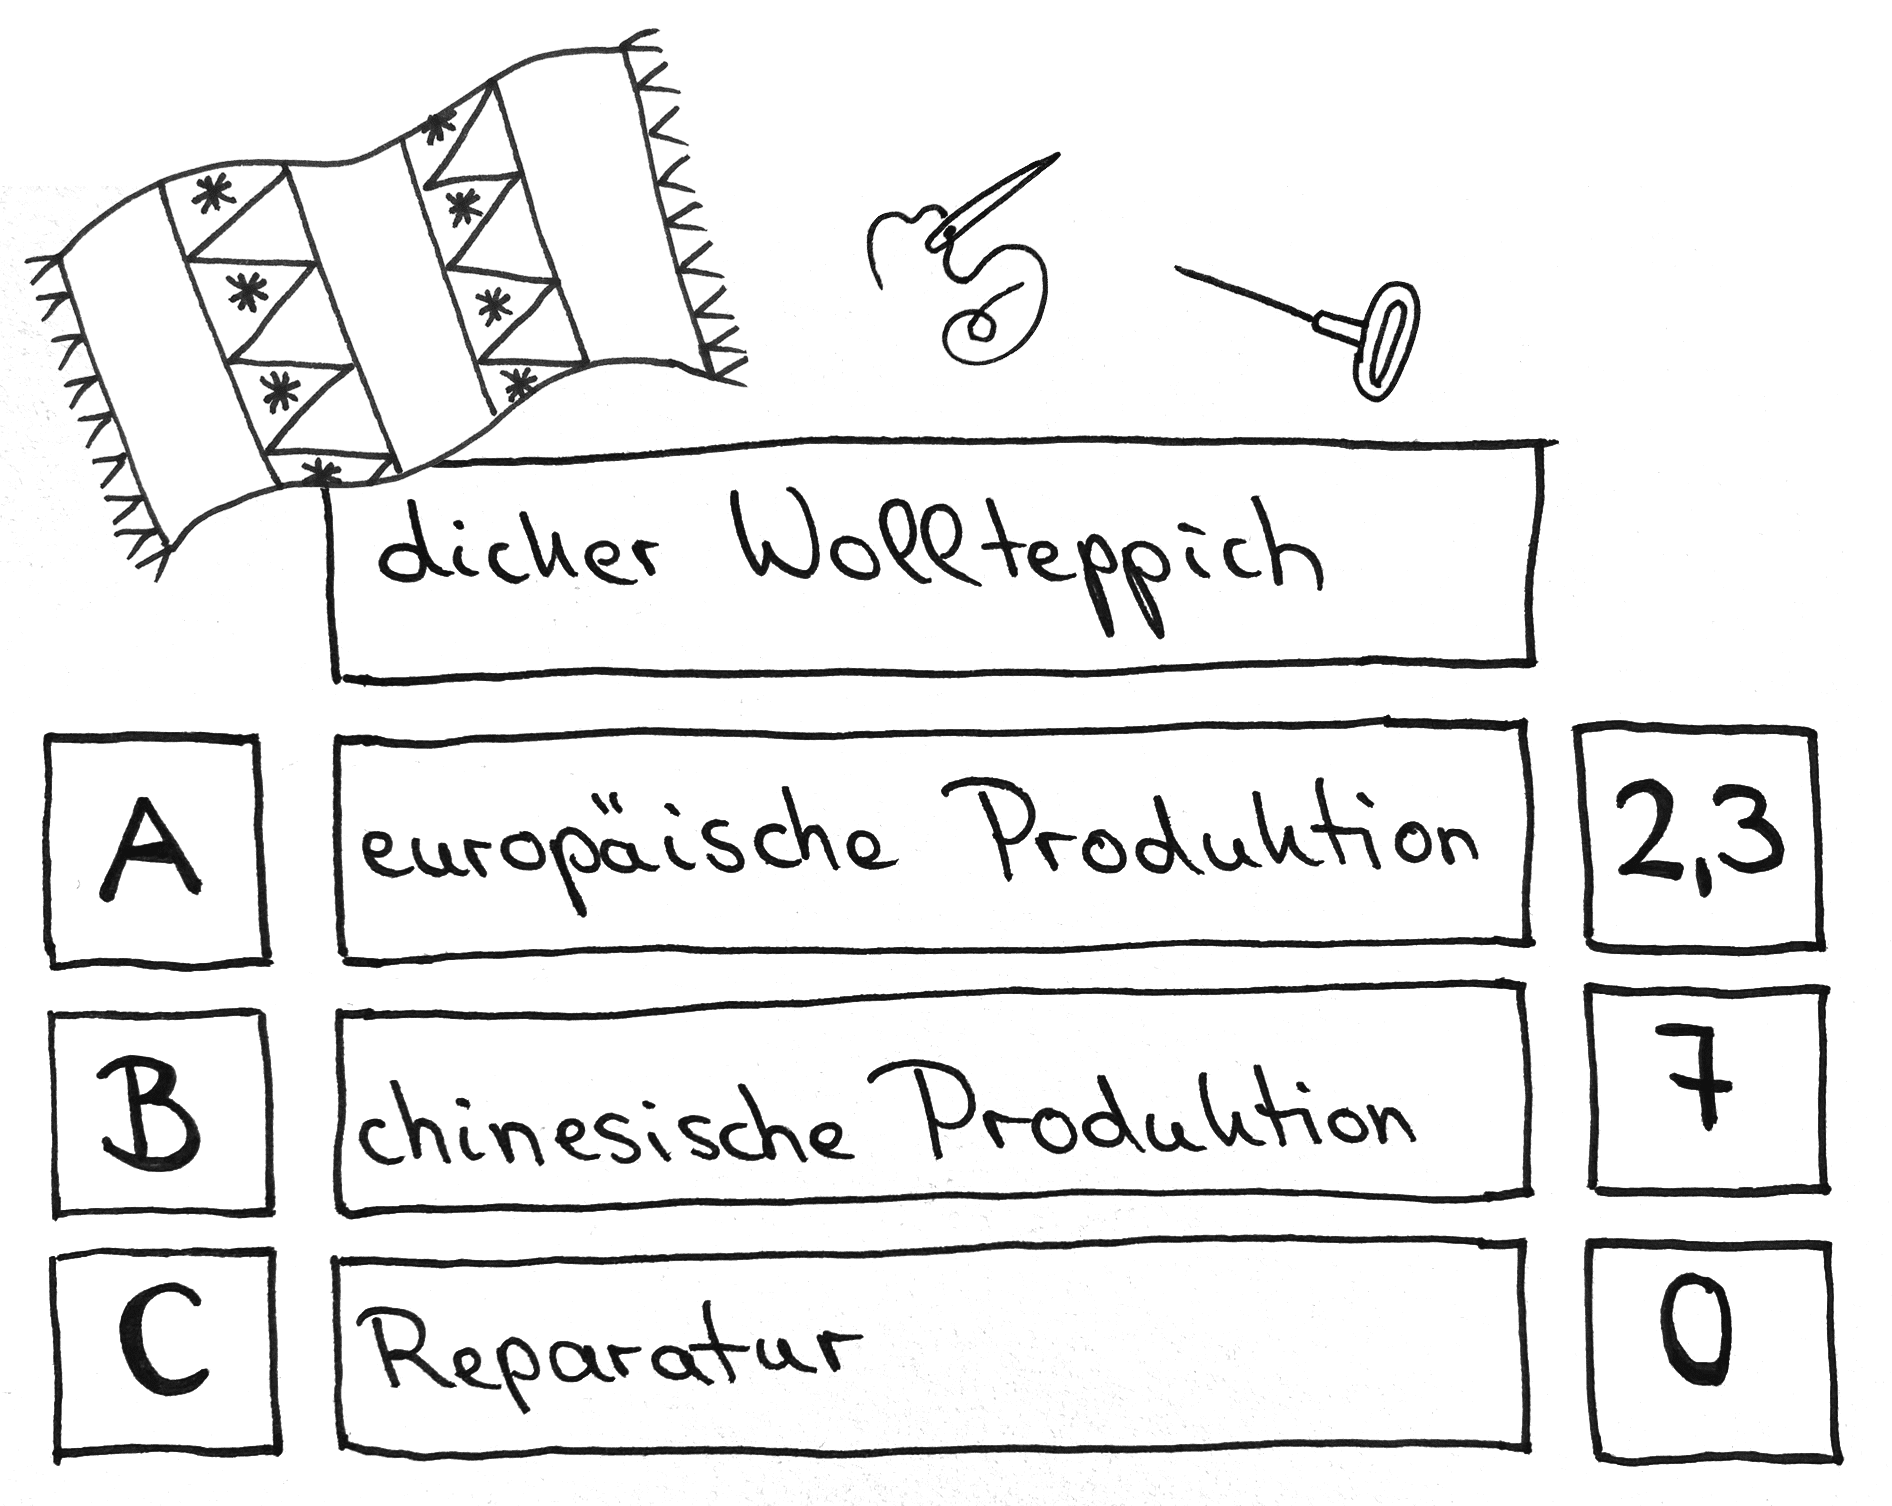 dicker Wollteppich
A europäische Produktion 2,3
B chinesische Produktion 7
C Reparatur 0